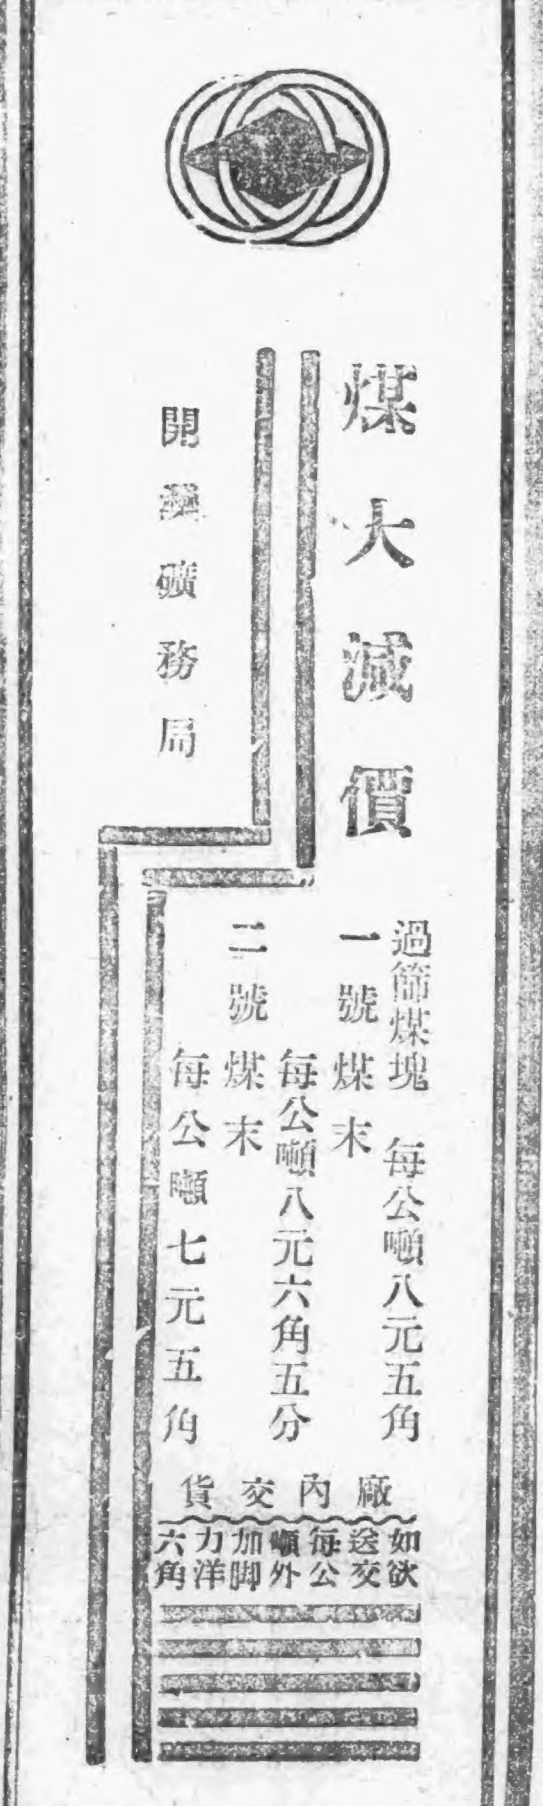 煤大減價
過篩煤塊 每公噸八元五角
一號煤末
每公噸八元六角五分
二號煤末
每公噸七元五角
廠內交貨
如欲送交每公噸外加脚力洋六角
開灤礦務局